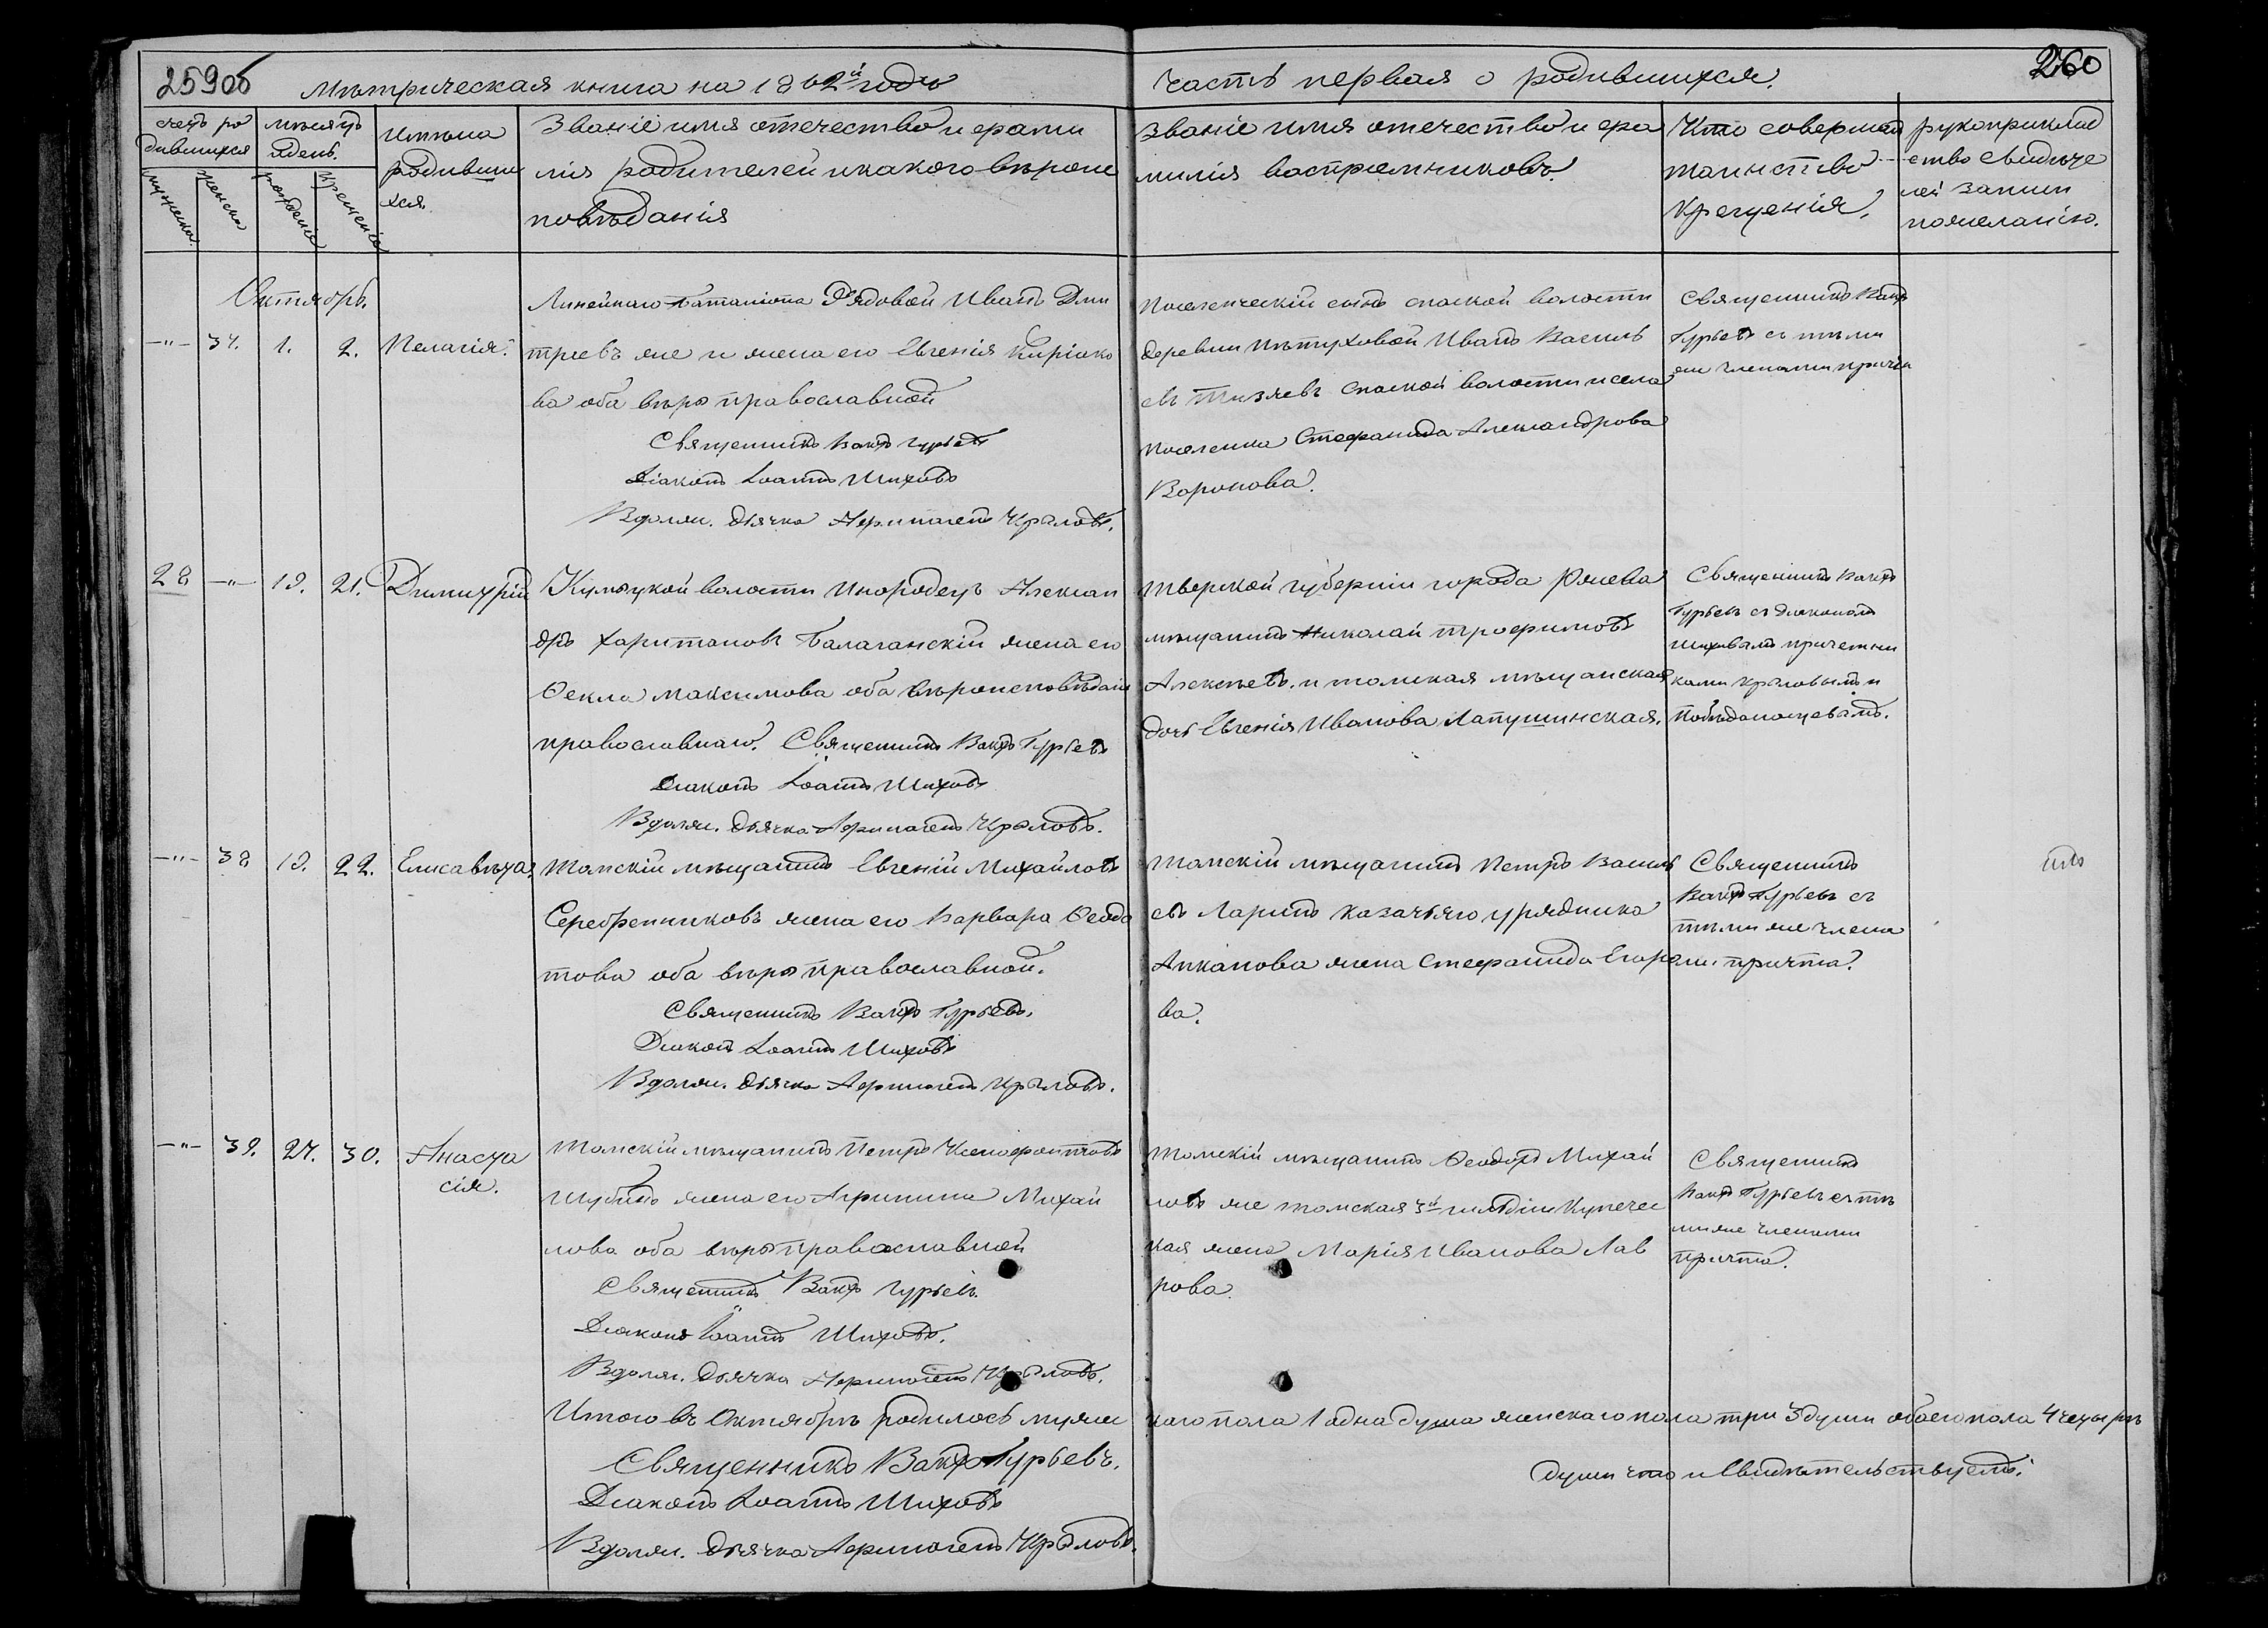 259об
Метрическая книга на 1862й годъ
часть первая о родившихся.
260
счетъ ро
дившихся
мужеска
женска
мѣсяцъ
и день.
рожденіе
крещеніе
Имяна
родивши
хся
Званіе имя отечество и фами
лія родителей и какого вѣроис
повѣданія
Званіе имя отечество и фа
милія воспріемниковъ.
Кто совершал
таинство
Крещенія.
рукоприклад
ство свидѣте
лей записи
пожеланію.
Октябрь.
-"- 37. 1. 2. Пелагія.
Линейнаго Баталіона Рядовой Иванъ Дми
тріевъ же и жена его Евгенія Киріако
ва оба вѣры православной
Священникъ Вакхъ Гурьевъ
Діаконъ Іоаннъ Шиховъ
В должн. дьячка Афиногенъ Крыловъ.
Поселенческій сынъ спаской волости
деревни Пѣтуховой Иванъ Василь
евъ спаской волости и села
поселенка Стефанида Александрова
Воронова.
Священникъ Вакхъ
Гурьевъ съ тѣми
же членами причта
28 -"- 19. 21. Димитрій
Кумыцкой волости Инородецъ Алексан
дръ Харитановъ Балаганскій жена его
Ѳекла Максимова оба вѣроисповѣданія
православнаго. Священникъ Вакхъ Гурьевъ
Діаконъ Іоаннъ Шиховъ
В должн. дьячка Афиногенъ Крыловъ.
Тверской губерніи города Ржева
мѣщанинъ Николай Трофимовъ
Алексѣевъ. и томская мѣщанская
дочь Евгенія Иванова Лапушинская.
Священникъ Вакхъ
Гурьевъ съ діакономъ
Шиховымъ причетни
ками Крыловымъ и
Побѣдоносцевымъ.
-"- 38 19. 22. Елисавѣта.
Томскій мѣщанинъ Евгеній Михайловъ
Серебренниковъ жена его Варвара Ѳедо
това оба вѣры православной.
Священникъ Вакхъ Гурьевъ.
Діаконъ Іоаннъ Шиховъ
В должн. дьячка Афиногенъ Крыловъ.
Томскій мѣщанинъ Петръ Василь
евъ Ларинъ казачьяго урядника
Апканова жена Стефанида Егоро
ва.
Священникъ
Вакхъ Гурьевъ съ
тѣми же члена
ми причта.
-"- 39. 27. 30. Анаста
сія.
Томскій мѣщанинъ Петръ Ксенофонтовъ
Шубинъ жена его Агрипина Михай
лова оба вѣры православной
Священникъ Вакхъ Гурьевъ.
Діаконъ Іоаннъ Шиховъ.
В должн. дьячка Афиногенъ Крыловъ.
Томскій мѣщанинъ Ѳеодоръ Михай
ловъ же томская 3й гильдіи Купечес
кая жена Марія Иванова Лав
рова.
Священникъ
Вакхъ Гурьевъ съ тѣ
ми же членами
причта.
Итого въ Октябрѣ родилось мужес
каго пола 1 одна душа женскаго пола три 3 души обоего пола 4 четыре
души что и свидѣтельствуемъ.
Священникъ Вакхъ Гурьевъ.
Діаконъ Іоаннъ Шиховъ
В должн. дьячка Афиногенъ Крыловъ.